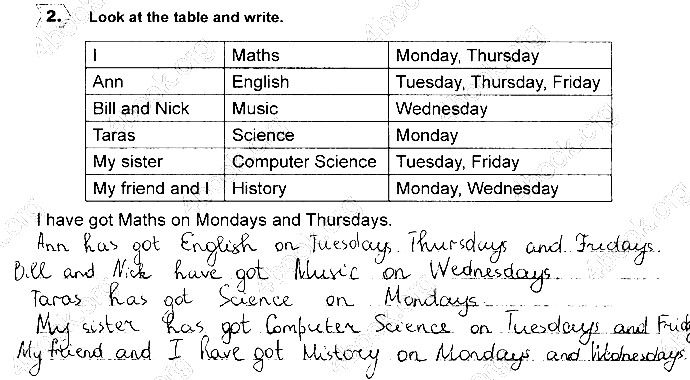 2. Look at the table and write.
I Maths Monday, Thursday
Ann English Tuesday, Thursday, Friday
Bill and Nick Music Wednesday
Taras Science Monday
My sister Computer Science Tuesday, Friday
My friend and I History Monday, Wednesday
I have got Maths on Mondays and Thursdays.
Ann has got English on Tuesdays. Thursdays and Fridays.
Bill and Nick have got Music on Wednesdays.
Taras has got Science on Mondays.
My sister has got Computer Science on Tuesdays and Frid
My friend and I have got History on Mondays and Wednesdays.
4book.org